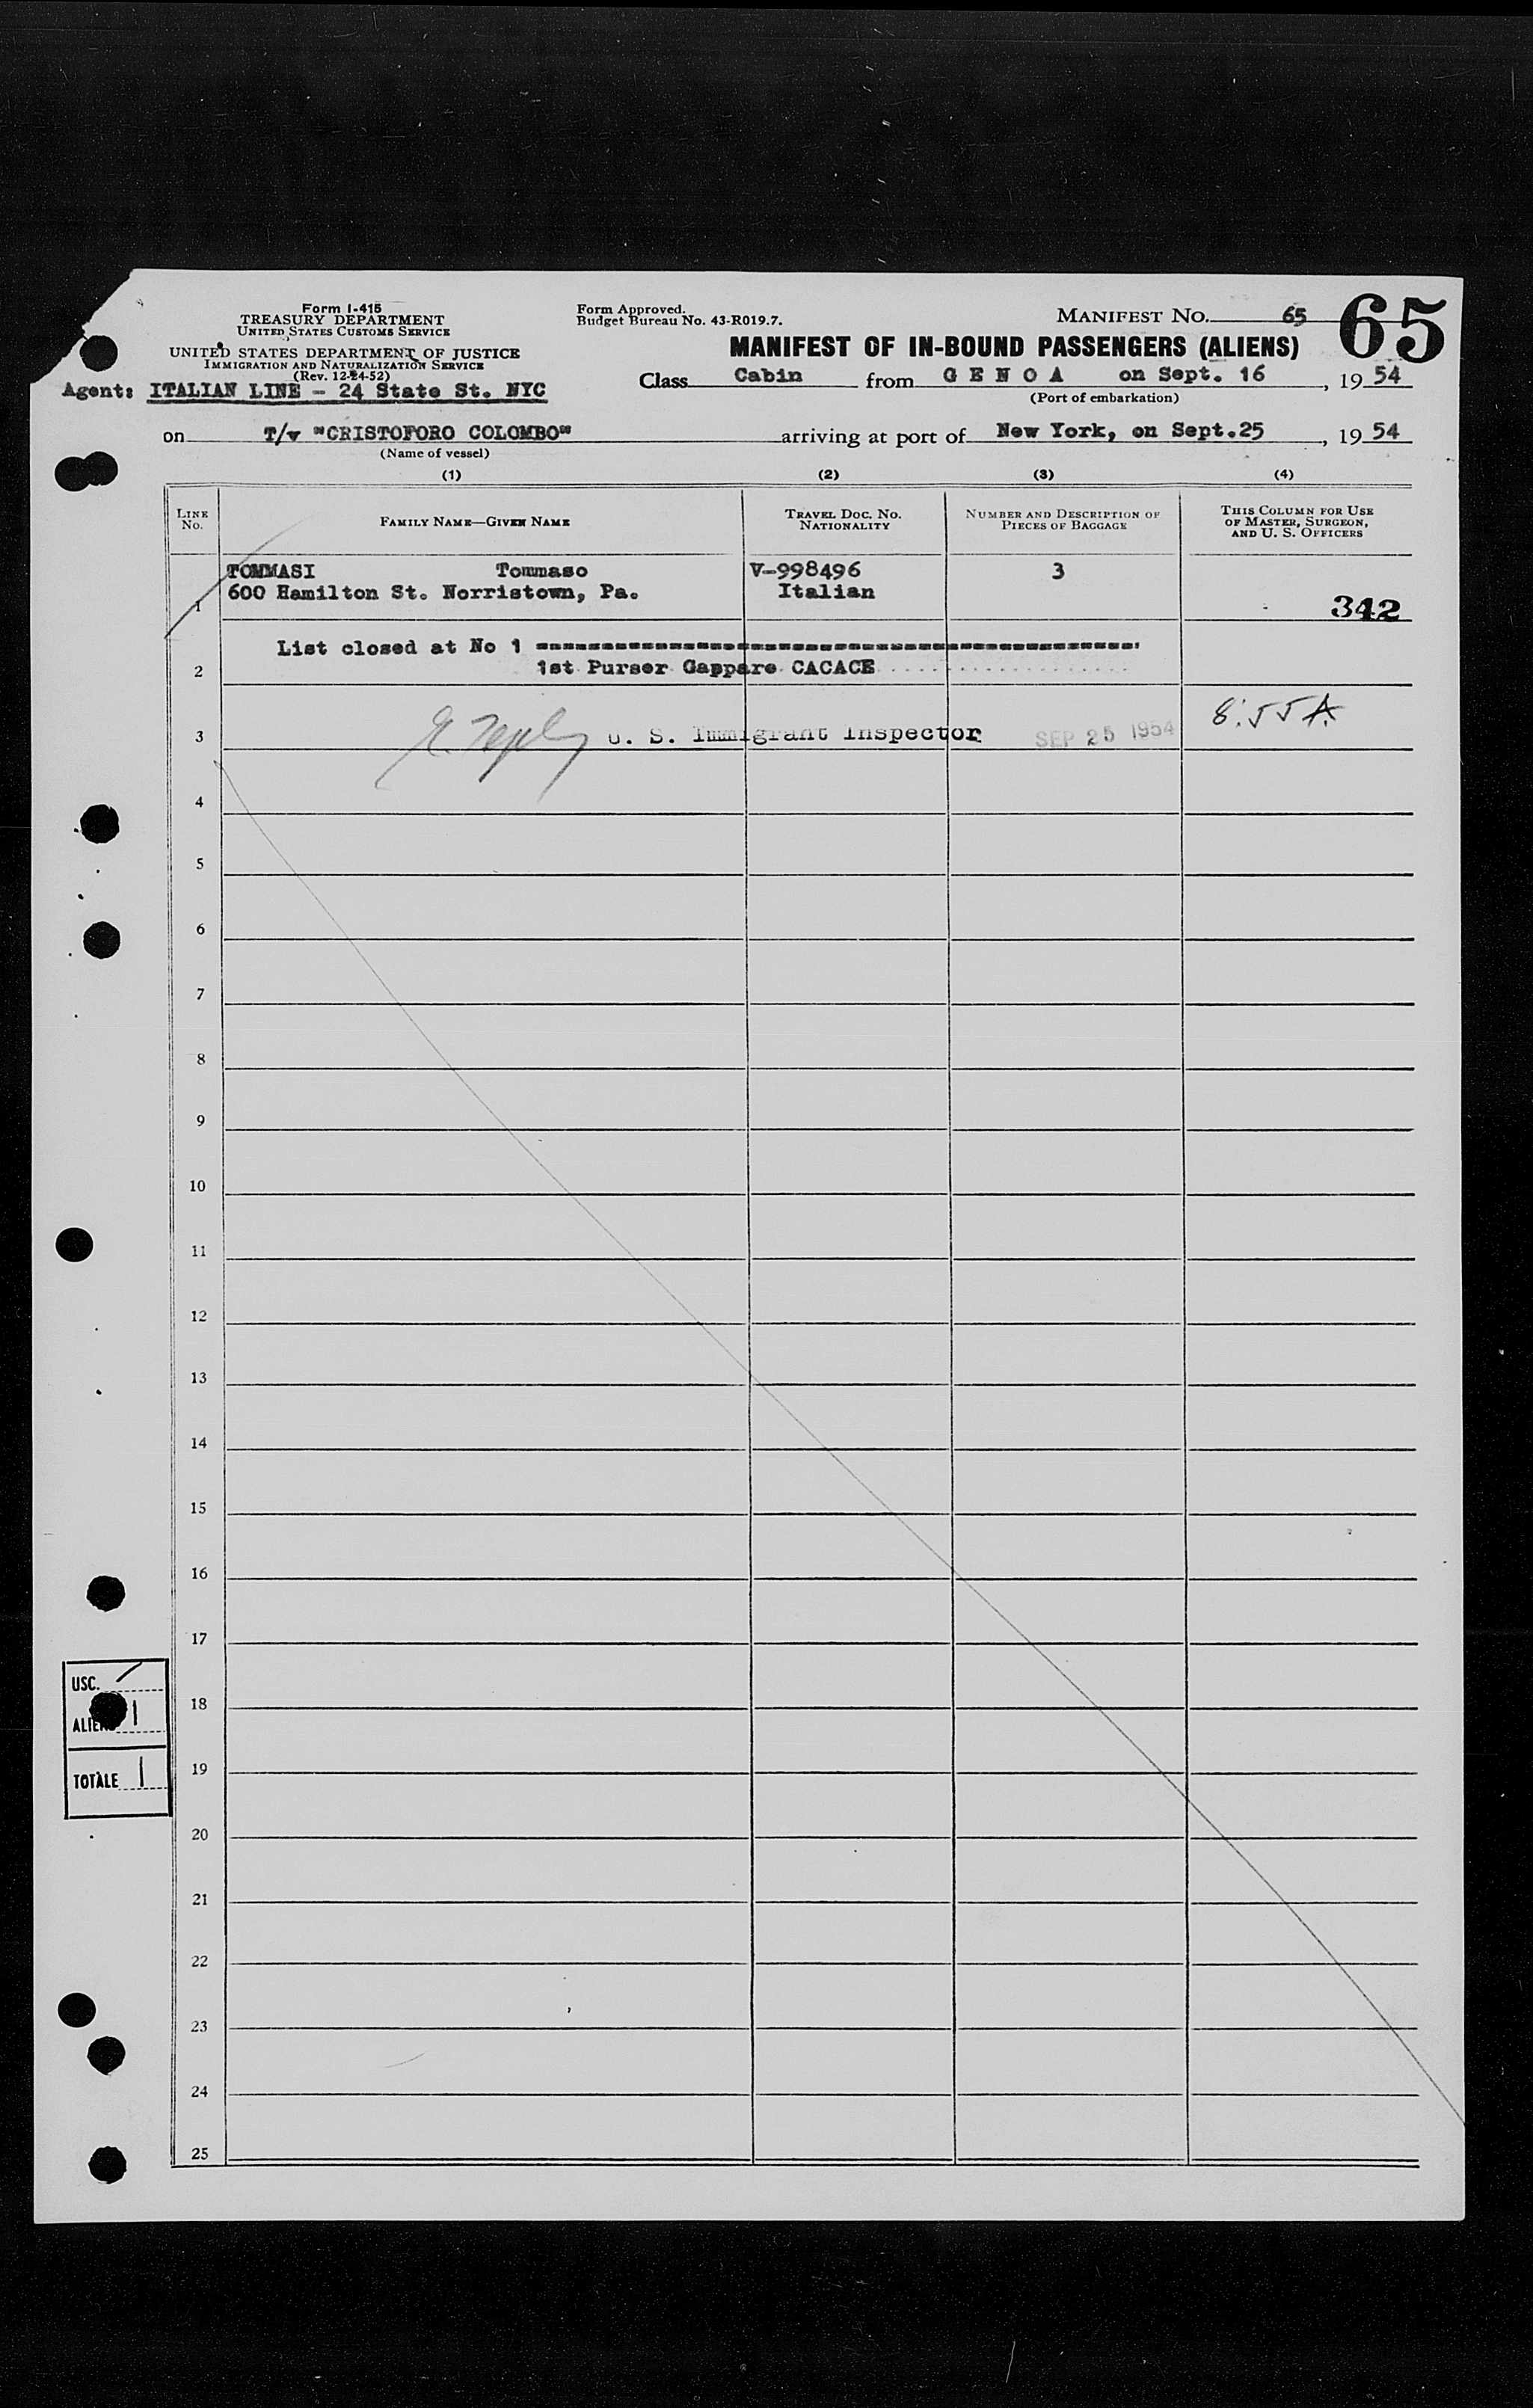 Form I-415
TREASURY DEPARTMENT
UNITED STATES CUSTOMS SERVICE
UNITED STATES DEPARTMENT OF JUSTICE
IMMIGRATION AND NATURALIZATION SERVICE
(Rev. 12-24-52)
Agent: ITALIAN LINE - 24 State St. NYC
Form Approved.
Budget Bureau No. 43-R019.7.
MANIFEST No. 65
65
MANIFEST OF IN-BOUND PASSENGERS (ALIENS)
Class Cabin from G E N O A on Sept. 16, 19 54
(Port of embarkation)
on T/v "CRISTOFORO COLOMBO" arriving at port of New York, on Sept.25, 19 54
(Name of vessel)
(1) (2) (3) (4)
LINE No. FAMILY NAME—GIVEN NAME TRAVEL DOC. NO. NATIONALITY NUMBER AND DESCRIPTION OF PIECES OF BAGGAGE THIS COLUMN FOR USE OF MASTER, SURGEON, AND U. S. OFFICERS
TOMMASI Tommaso V-998496 3
1 600 Hamilton St. Norristown, Pa. Italian 342
List closed at No 1
2 1st Purser Gappare CACACE
3 U. S. Immigrant Inspector SEP 25 1954 8:55A
4
5
6
7
8
9
10
11
12
13
14
15
16
17
USC.
18
ALIENS 1
19
TOTALE 1
20
21
22
23
24
25